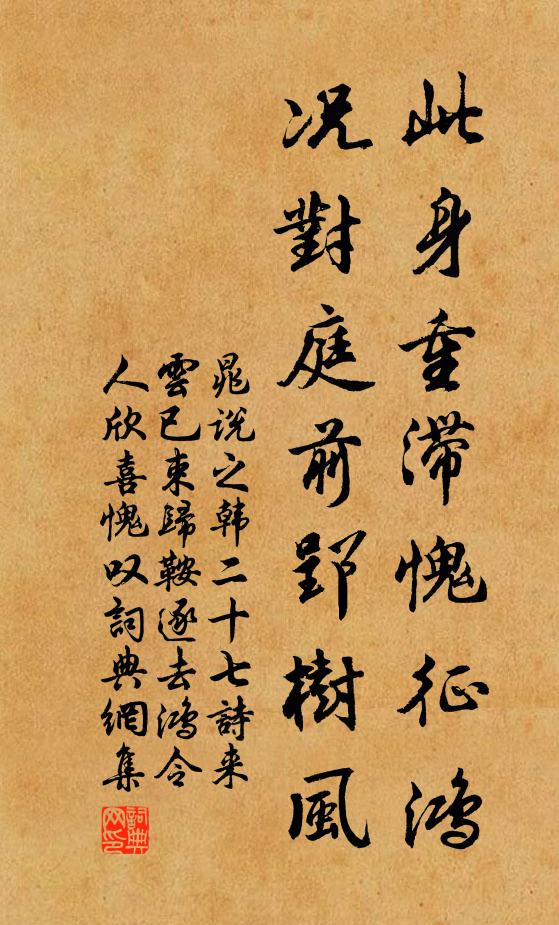 此身重滯愧征鴻
況對庭前郢樹風
晁說之韩二十七詩来
雲已束歸鞍逐去鴻令
人欣喜愧叹詞典網集
詞典网印